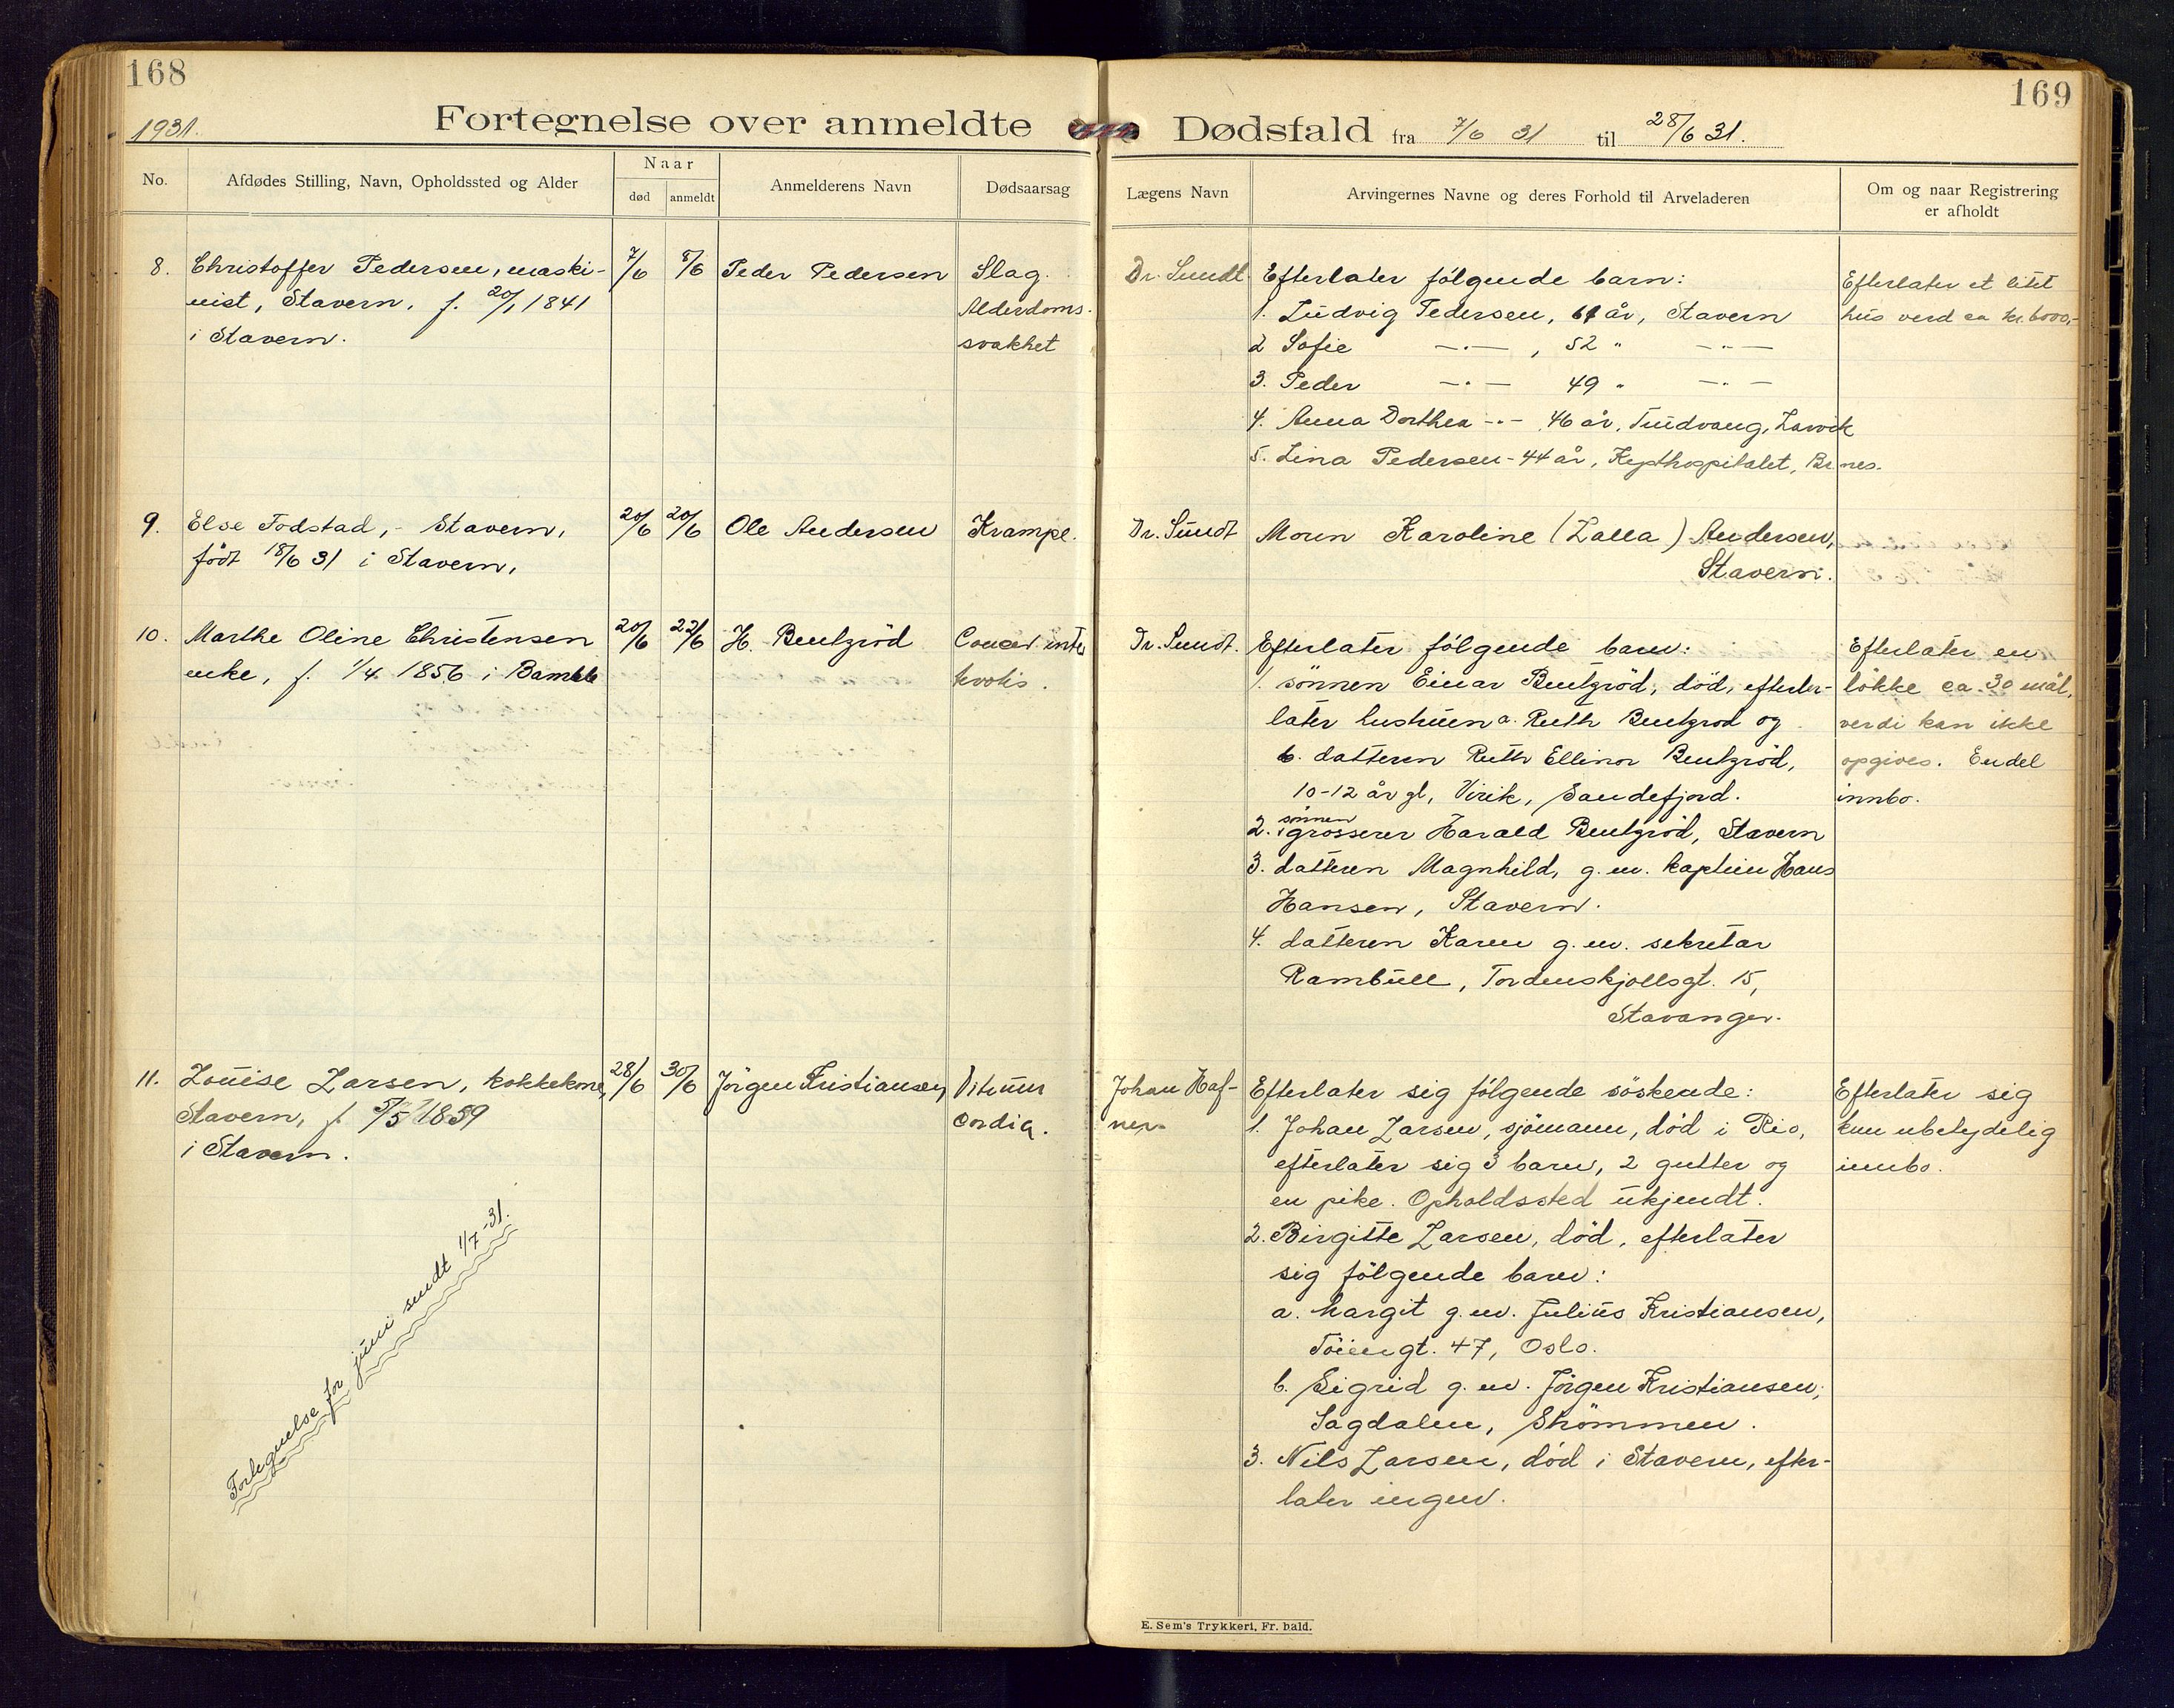 168
1931.
Fortegnelse over anmeldte
No.
Afdødes Stilling, Navn, Opholdssted og Alder
Naar
død
anmeldt
Anmelderens Navn
Dødsaarsag
8.
Christoffer Pedersen, maski-
nist, Stavern, f. 20/1 1841
i Stavern.
7/6
8/6
Peder Pedersen
Slag.
Alderdoms-
svakhet
9.
Else Fodstad, - Stavern,
født 18/6 31 i Stavern,
20/6
20/6
Ole Andersen
Krampe.
10.
Marthe Oline Christensen
enke, f. 1/4 1856 i Bamble
20/6
22/6
H. Bentzrød
11.
Louise Larsen, kokkekone,
Stavern, f. 5/5 1859
i Stavern.
28/6
30/6
Jörgen Kristiansen
Vitium
cordia.
Fortegnelse for juni sendt 1/7-31.
169
Dødsfald fra 7/6 31 til 28/6 31.
Lægens Navn
Arvingernes Navne og deres Forhold til Arveladeren
Om og naar Registrering
er afholdt
Dr. Sundt
Efterlater følgende barn:
1. Ludvig Pedersen, 61 år, Stavern
2 Sofie —"— , 52 " —"—
3. Peder —"— 49 " —"—
4. Anna Dorthea -"- 46 år, Larvik
5. Lina Pedersen - 44 år,
Efterlater et litet
hus verd ca kr. 6000,-
Dr. Sundt
Moren Karoline (Lalla) Andersen,
Stavern.
Dr. Sundt.
Efterlater følgende barn:
1. sönnen Einar Bentzröd, död, efterla-
later hustruen a. Ruth Bentzrod og
b. datteren Ruth Ellinor Bentzröd,
10-12 år gl, Virik, Sandefjord.
2. sönnen grosserer Harald Bentzröd, Stavern
3. datteren Magnhild, g.m. kaptein Hans
Hansen, Stavern.
4. datteren Karen g.m. sekretær
Rambüll, Tordenskjollsgt. 15,
Stavanger.
Efterlater en
løkke ca. 30 mål,
verdi kan ikke
opgives. Endel
innbo.
Johan Haf-
ner.
Efterlater sig følgende söskende:
1. Johan Larsen, sjömann, död i Rio,
efterlater sig 3 barn, 2 gutter og
en pike. Opholdssted ukjendt.
2. Birgitte Larsen, död, efterlater
sig følgende barn:
a. Margit g.m. Julius Kristiansen,
Töiengt. 47, Oslo.
b. Sigrid g.m. Jörgen Kristiansen,
Sagdalen, Strömmen.
3. Nils Larsen, död i Stavern, efter-
later ingen.
Efterlater sig
kun ubetydelig
innbo.
E. Sem's Trykkeri, Fr. hald.